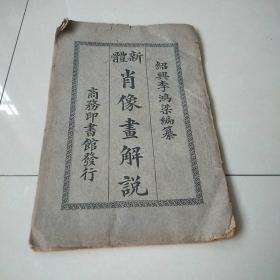 紹興李鴻梁編纂
新體
肖像畫解說
商務印書館發行